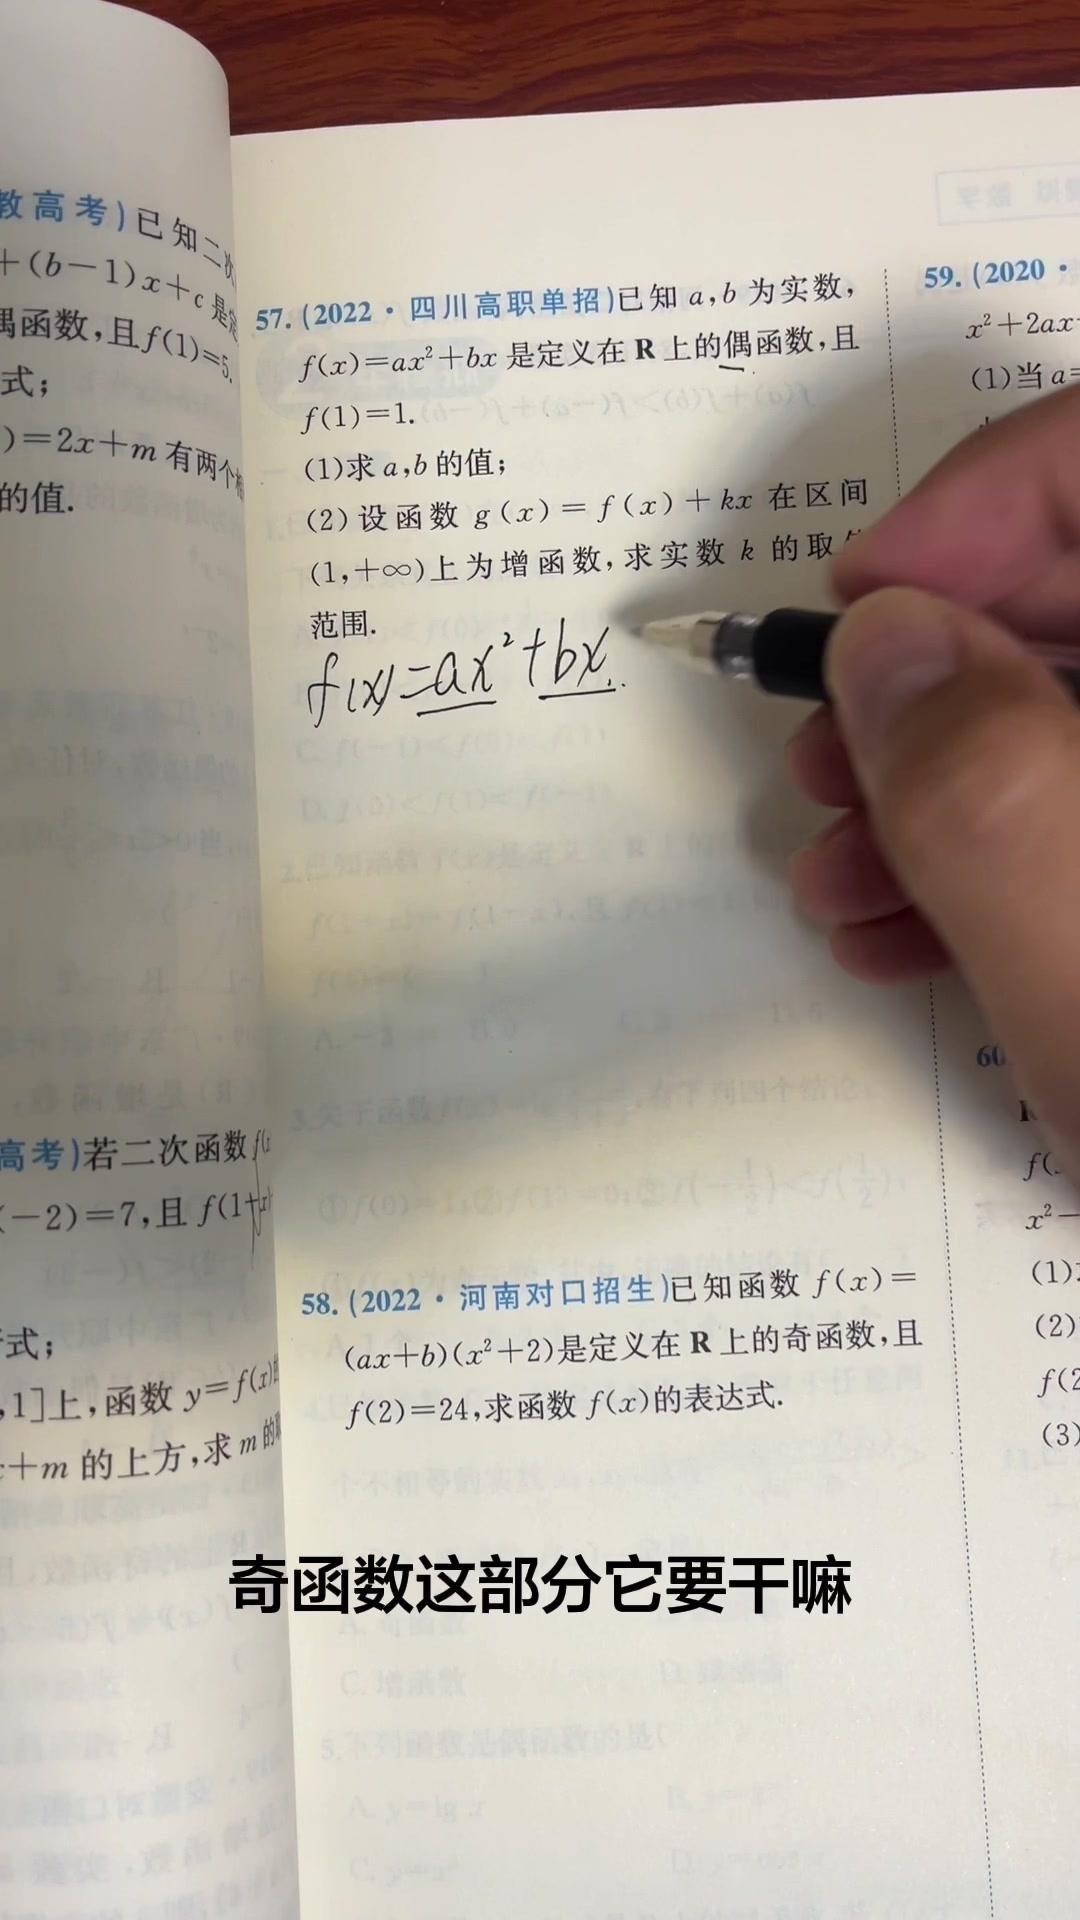 教高考)已知二次
+(b-1)x+c是定
偶函数,且f(1)=5.
式;
)=2x+m有两个相
的值.
高考)若二次函数f(x
(-2)=7,且f(1+x)
式;
,1]上,函数y=f(x)的
x+m的上方,求m的取
57.(2022·四川高职单招)已知a,b为实数,
f(x)=ax²+bx是定义在R上的偶函数,且
f(1)=1.
(1)求a,b的值;
(2)设函数g(x)=f(x)+kx在区间
(1,+∞)上为增函数,求实数k的取
范围.
f(x)=ax²+bx.
58.(2022·河南对口招生)已知函数f(x)=
(ax+b)(x²+2)是定义在R上的奇函数,且
f(2)=24,求函数f(x)的表达式.
奇函数这部分它要干嘛
59.(2020·
x²+2ax
(1)当a=
60
f(
x²-
(1)
(2)
f(2
(3)